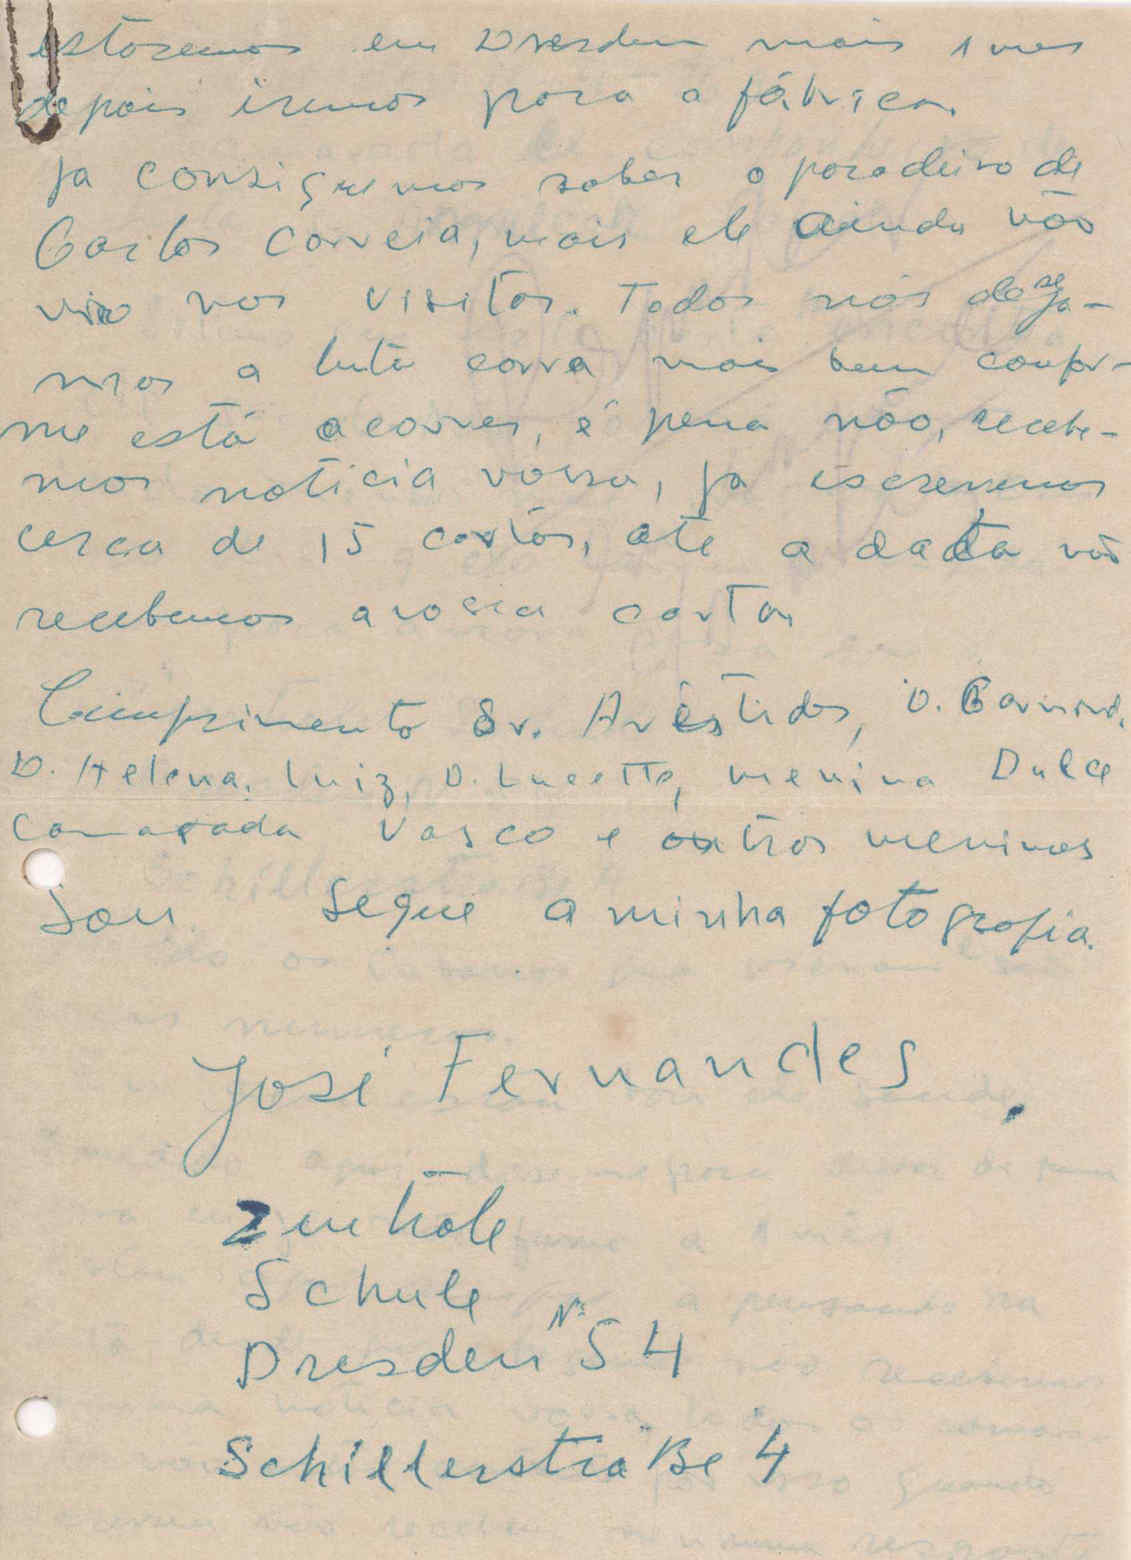 estaremos em Dresden mais 1 mes
depois iremos para a fábrica.
Ja consiguemos saber o paradeiro de
Carlos Correia, mais ele ainda não
viro nos visitar. Todos nós deseja-
mos a luta corra mais bem confor-
me está acorrer, é pena não, recebe-
mos noticia vossa, ja escrevemos
cerca de 15 cartas, até a dacta não
recebemos avossa carta
Cumprimento Sr. Aristides, D.
D. Helena, Luiz, D. Lucette, menina Dulce
Camarada Vasco e outros meninos
Sou Segue a minha fotografia.
José Fernandes.
Zentrale
Schule
Dresden Nº S 4
Schillerstraße 4